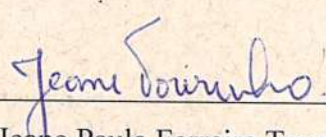 Jeane Tourinho
Jeane Paula Ferreira